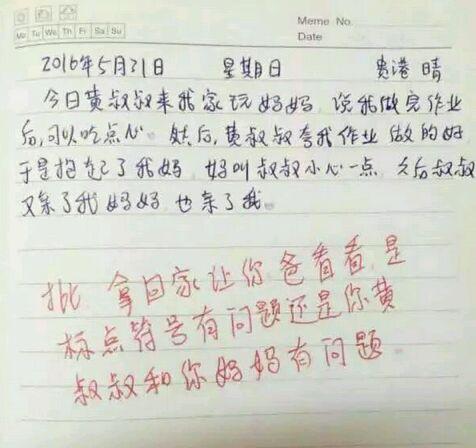 Meme No.
Mo Tu We Th Fri Sa Su
Date
2016年5月31日 星期日 贵港 晴
今日黄叔叔来我家玩妈妈,说我做完作业
后,可以吃点心。然后,黄叔叔夸我作业 做的好
于是抱起了我妈 妈叫叔叔小心一点 之后叔叔
又亲了我妈妈 也亲了我。
批 拿回家让你爸看看,是
标点符号有问题还是你黄
叔叔和你妈妈有问题